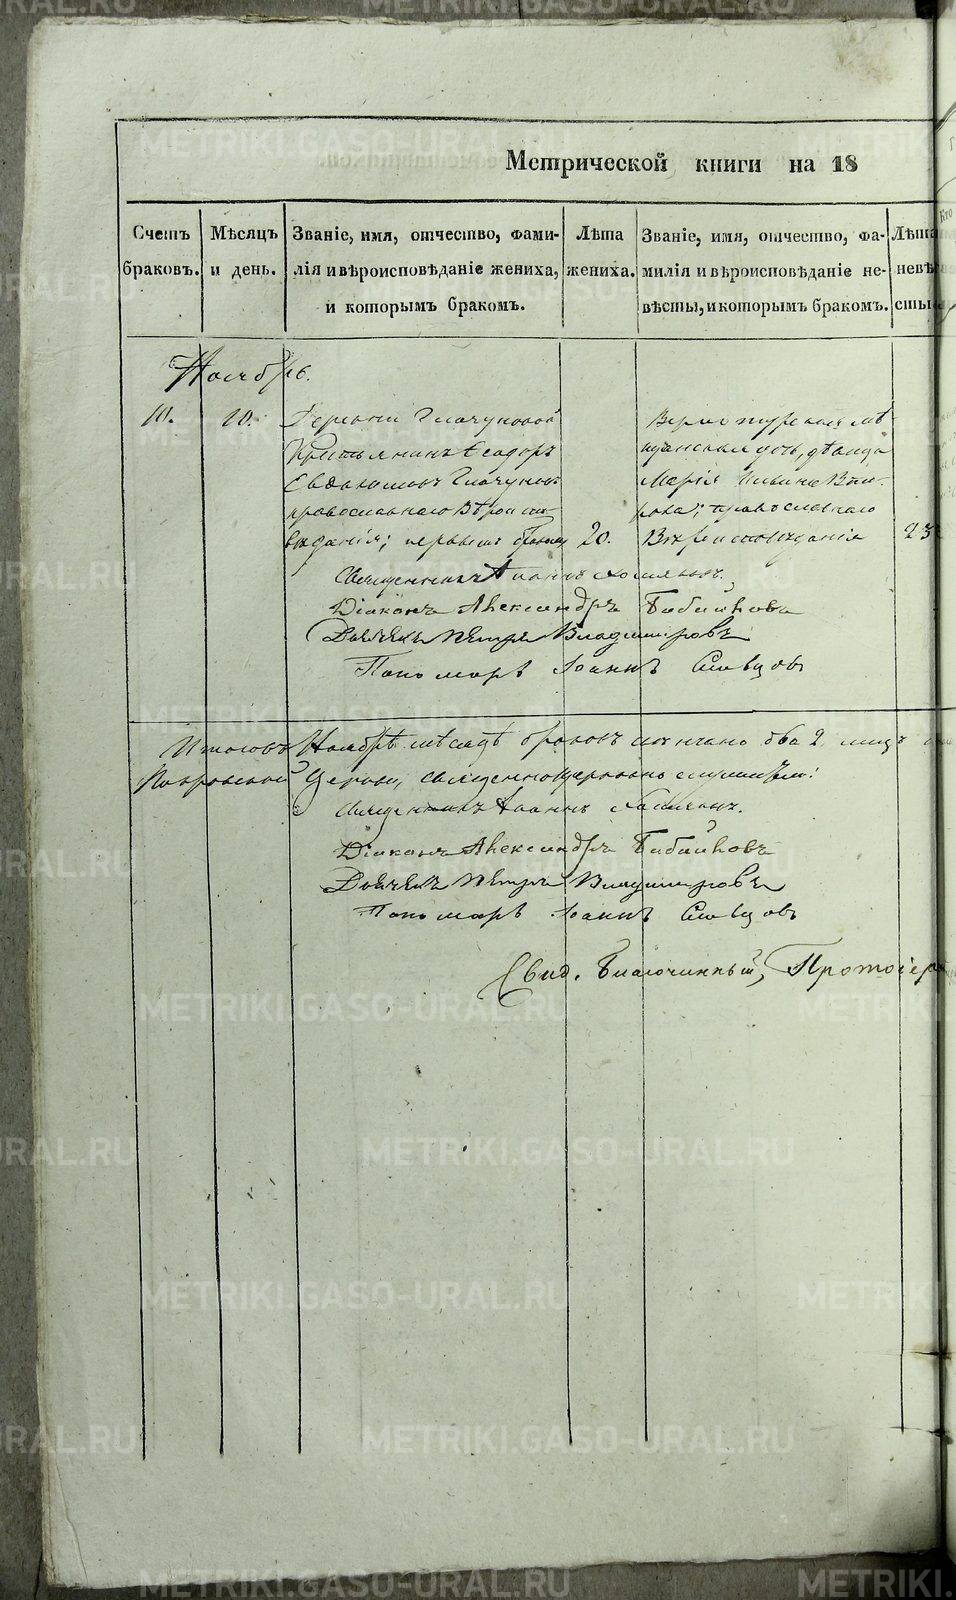 Метрической книги на 18
Счетъ браковъ.
Мѣсяцъ и день.
Званіе, имя, отчество, фами-
лія и вѣроисповѣданіе жениха,
и которымъ бракомъ.
Лѣта жениха.
Званіе, имя, отчество, фа-
милія и вѣроисповѣданіе не-
вѣсты, и которымъ бракомъ.
Лѣта
невѣ
сты
Ноябрь.
10.
Деревни Глазуновой
Крестьянинъ Ѳеодоръ
Евдокимовъ Глазуновъ
православнаго Вѣроиспо-
вѣданія; первымъ бракомъ
20.
Верхотурская мѣ-
щанская дочь, дѣвица
Марія
православнаго
Вѣроисповѣданія
23
Священникъ Іоаннъ
Діаконъ Александръ Бибиковъ
Дьячекъ Петръ Владимировъ
Пономарь Іоаннъ Словцовъ
Итого въ Ноябрѣ мѣсяцѣ браковъ два 2.
Покровской Церкви, священноцерковнослужители:
Священникъ Іоаннъ
Діаконъ Александръ Бибиковъ
Дьячекъ Петръ Владимировъ
Пономарь Іоаннъ Словцовъ
Свид. Благочинный, Протоіер
METRIKI.GASO-URAL.RU